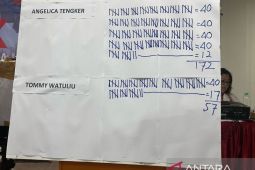 ANGELICA TENGKER
=40
=40
=40
=40
=12
172
TOMMY WATULIU
=40
=17
57
ANTARA